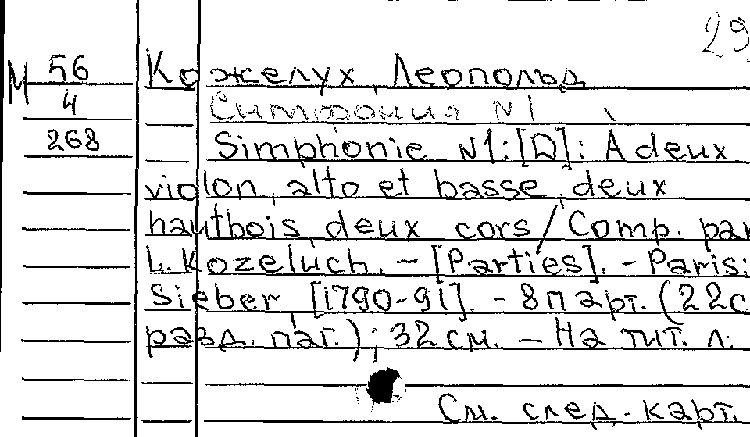 29
М 56 Кожелух, Леопольд
4 Симфония N1
268 Simphonie N1: [D]: A deux
violon, alto et basse, deux
hautbois, deux cors / Comp. par
L. Kozeluch. - [Parties]. - Paris:
Sieber, [1790-91]. - 8 парт. (22с
разд. паг.); 32 см. - На тит. л.
См. след. карт.